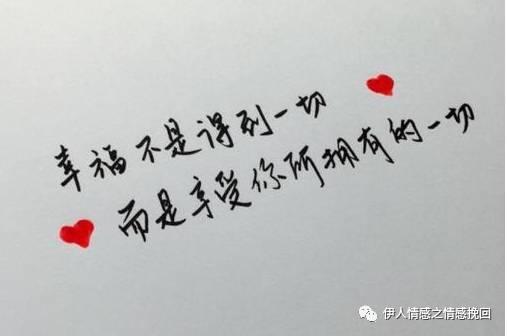 幸福不是得到一切
而是享受你所拥有的一切
伊人情感之情感挽回